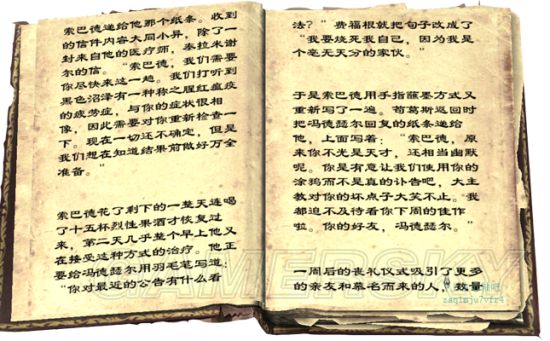 索巴德递给他那个纸条。收到
的信件内容大同小异，除了一
封来自他的医疗师，泰拉米谢
尔的信。“索巴德，我们需要
你尽快来这一趟。我们打听到
黑色沼泽有一种称之腥红瘟疫
的疲劳症，与你的症状很相
像，因此需要对你重新检查一
下。现在一切还不确定，但是
我们想在知道结果前做好万全
准备。”
索巴德花了剩下的一整天连喝
了十五杯烈性果酒才恢复过
来，第二天几乎整个早上他又
在接受这种方式的治疗。他正
要给冯德瑟尔用羽毛笔写道：
“你对最近的公告有什么看
法？”费福根就把句子改成了
“我要烧死我自己，因为我是
个毫无天分的家伙。”
于是索巴德用手指蘸墨方式又
重新写了一遍。荀葛斯返回时
把冯德瑟尔回复的纸条递给
他，上面写着：“索巴德，原
来你不光是天才，还相当幽默
呢。你是有意让我们使用你的
涂鸦而不是真的讣告吧，大主
教对你的坏点子大笑不止。我
都迫不及待看你下周的佳作
啦。你的好友，冯德瑟尔。”
一周后的丧礼仪式吸引了更多
的亲友和慕名而来的人，数量
GAMERSKY
zaq1mju7vfr4